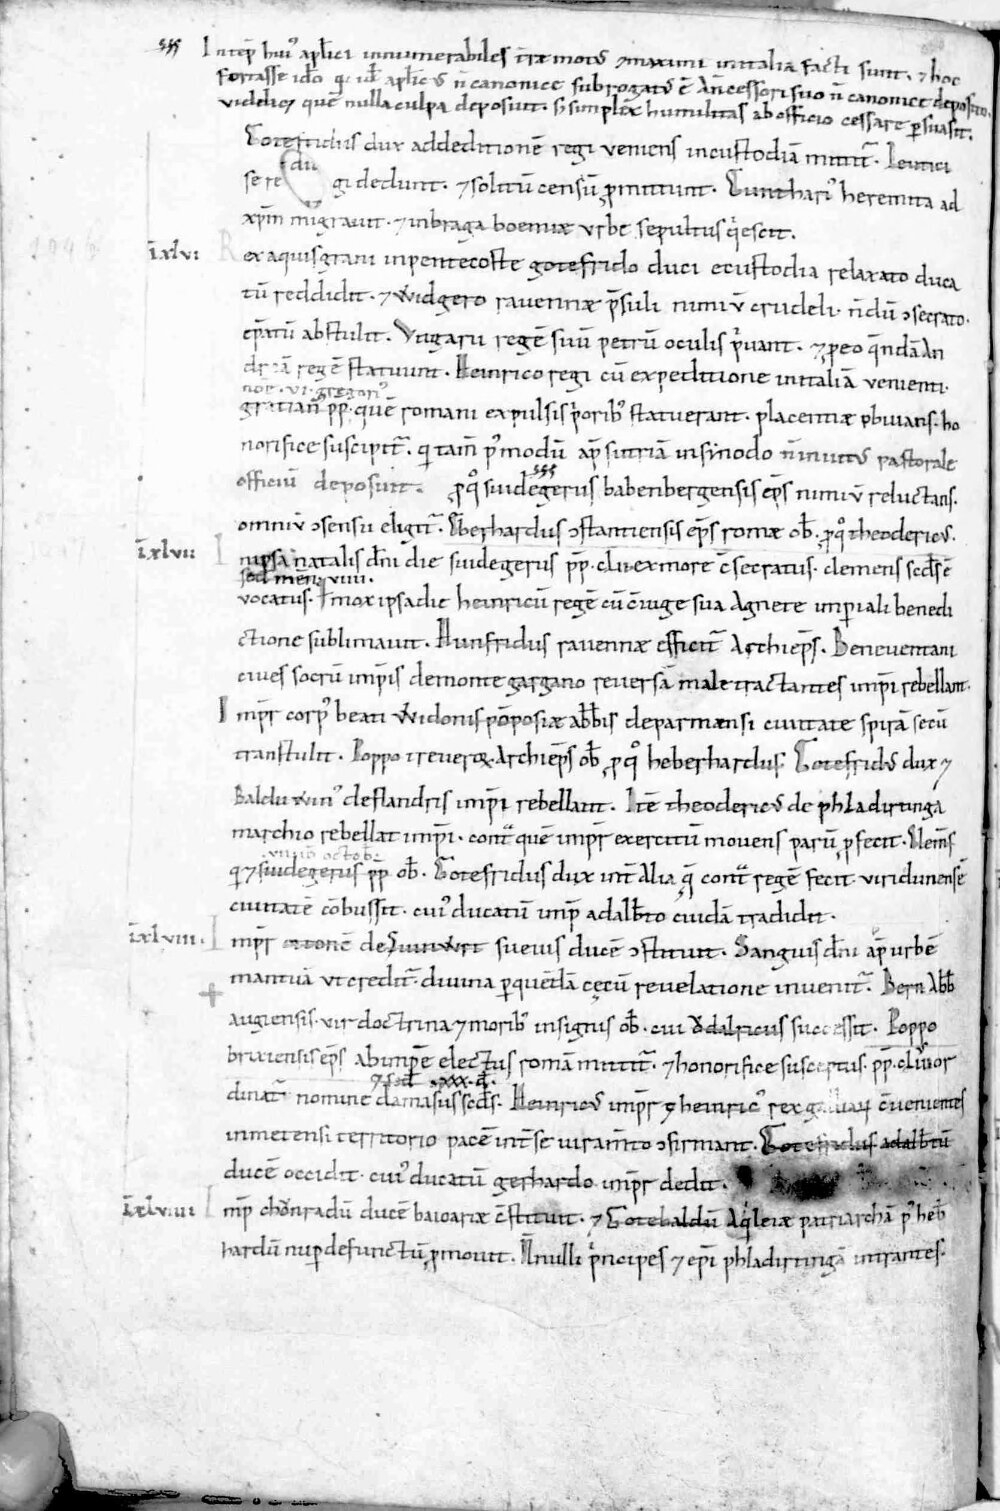 In tēp hui᾽ apƚici innumerabiles t̄ræmot᾽ ⁊ maximi in italia facti sunt. ⁊ hoc
fortasse ido qͥ id̄ apƚic᾽ n̄ canonice subrogat᾽ ē Antecessori suo n̄ canonice deposito.
videlic⁊ quē nulla culpa deposuit. s; simplex humilitas ab officio cessare ꝑsuasit.
Gotefridus dux ad deditionē regi veniens in custodiā mittit᷑. Leutici
se re gi dedunt. ⁊ solitū censū ꝓmittunt. Gunthari᾽ heremita ad
xp̄m migravit. ⁊ in braga boemiæ vrbe sepultus qͥescit.
īxlvi Rex aquisgrani in pentecoste gotefrido duci e custodia relaxato duca
tū reddidit. ⁊ Widgero ravennæ p̄suli nimiū crudeli. n̄dū ɔsecrato.
ep̄atū abstulit. Vngarii regē suū petrū oculis pͥvant. ⁊ ꝓ eo qͣndā An
dream regē statuunt. Heinrico regi cū expeditione in italiā venienti.
nōe. vi. gregori᾽
gratian᾽ pp̄. quē romani expulsis pͥorib᾽ statuerant. placentiæ obvians. ho
norifice suscipit᷑. qͥ tam̄ p᾽ modū ap᷑ sutriā in sinodo n̄ invit᾽ pastorale
officiū deposuit. ꝓ qͦ suidegerus babenbergensis ep̄s nimiū reluctans.
omniū ɔsensu eligit᷑. Eberhardus ɔstantiensis ep̄s romæ ob̄. ꝓ qͦ theoderic᾽.
īxlvii In ipsa natalis dn̄i die suidegerus pp̄. clii ex more c̄secratus. clemens scd̄s ē
sed̄ mens. viiii.
vocatus. ⁊ mox ipsa die heinricū regē cū c̄iuge sua Agnete imꝑiali benedi
ctione sublimavit. Hunfridus ravennæ efficit᷑ Archiep̄s. Beneventani
cives socrū imp̄is de monte gargano reversā male tractantes imp̄i rebellant.
Imp̄r corp᾽ beati Widonis pōposiæ abb̄is de parmensi civitate spirā secū
transtulit. Poppo treverox Archiep̄s ob̄. ꝓ qͦ heberhardus. Gotefrid᾽ dux ⁊
Balduwin᾽ de flandris imp̄i rebellant. Itē theoderic᾽ de phladirtinga
marchio rebellat imp̄i. contͣ quē imp̄r exercitū movens parū ꝓfecit. Clem̄s
vii id᾽ octob᷑.
qͥ ⁊ suidegerus pp̄ ob̄. Gotefridus dux int᷑ Alia qͣ contͣ regē fecit. viridunensē
civitatē cōbussit. cui᾽ ducatū imp̄ adalb̄to cuidā tradidit.
īxlviii. Imp̄r ottonē de Suinwrt suevis ducē ɔstituit. Sanguis dn̄i ap᷑ urbē
mantuā ut credit᷑. divina ꝑ quēdā cęcū revelatione invenit᷑. Bern Abb̄
augiensis. vir doctrina ⁊ morib᾽ insignis ob̄. cui Vodalricus successit. Poppo
brixiensis ep̄s ab imp̄e electus romā mittit᷑. ⁊ honorifice susceptus. pp̄. cliii or
⁊ sed̄ xxx. d̄.
dinat᷑ nomine damasus scd̄s. Heinric᾽ imp̄r ⁊ heinric᾽ rex galliarū c̄venientes
in metensi territorio pacē int᷑ se iuram̄to ɔfirmant. Gotefridus adalb̄tū
ducē occidit. cui᾽ ducatū gerhardo imp̄r dedit.
īxlviiii Imp̄r chōnradū ducē baioariæ c̄stituit. ⁊ Gotebaldū Aqͥleiæ patriarchā p᾽ heb᷑
hardū nuꝑ defunctū ꝓmovit. Nonnulli pͥncipes ⁊ ep̄i phladirtingā intrantes.